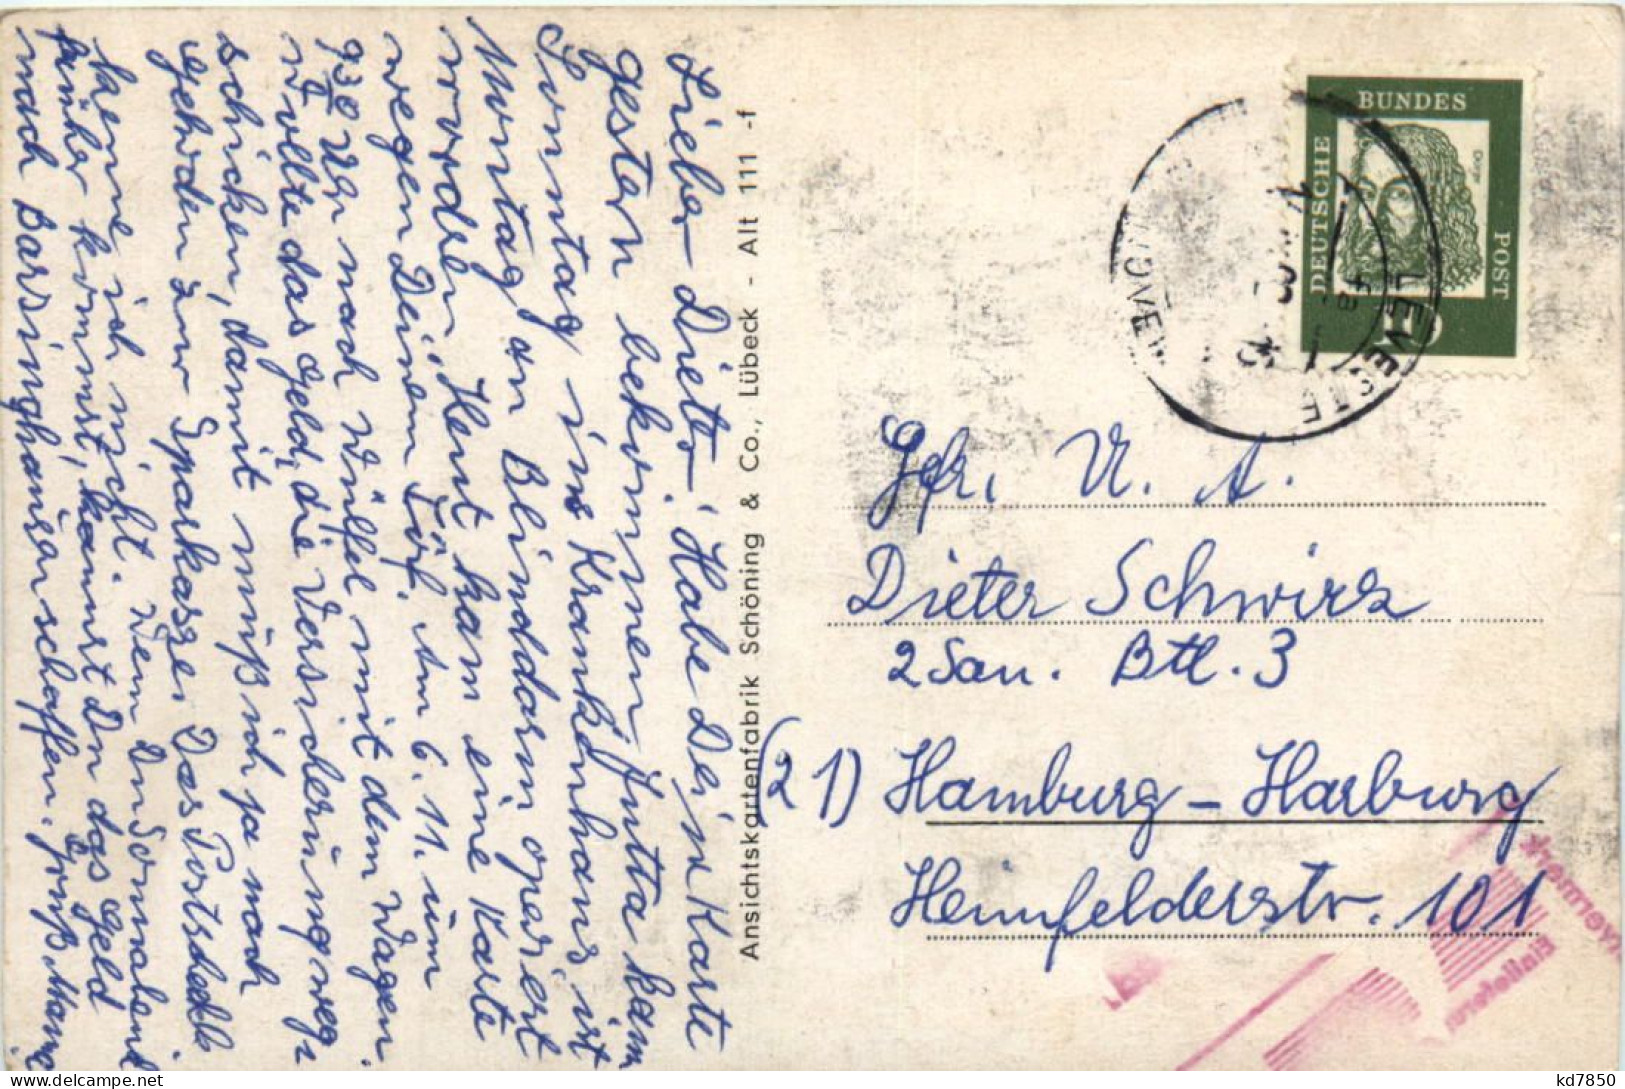 Lieber Dieter! Habe Deine Karte
gestern bekommen, Jutta kam
Sonntag ins Krankenhaus ist
Montag an Blinddarm operiert
worden. Heut kam eine Karte
wegen Deinem Töf. Am 6. 11. um
9³⁰ Uhr nach Wülfel mit dem Wagen.
Wollte das Geld, die Versicherung weg-
schicken, damit muß ich ja nach
Gehrden zur Sparkasse. Das Postscheck
kenne ich nicht. Wenn Du Sonnabend
früher kommst, kannst Du das Geld
nach Barsinghausen schaffen. Gruß Mama
Ansichtskartenfabrik Schöning & Co., Lübeck - Alt 111 -f
DEUTSCHE
BUNDES
POST
Dürer
10
LEVESTE
HANNOVER
Gefr. U. A.
Dieter Schwirz
2 San. Btl. 3
(21) Hamburg - Harburg
Heimfelderstr. 101